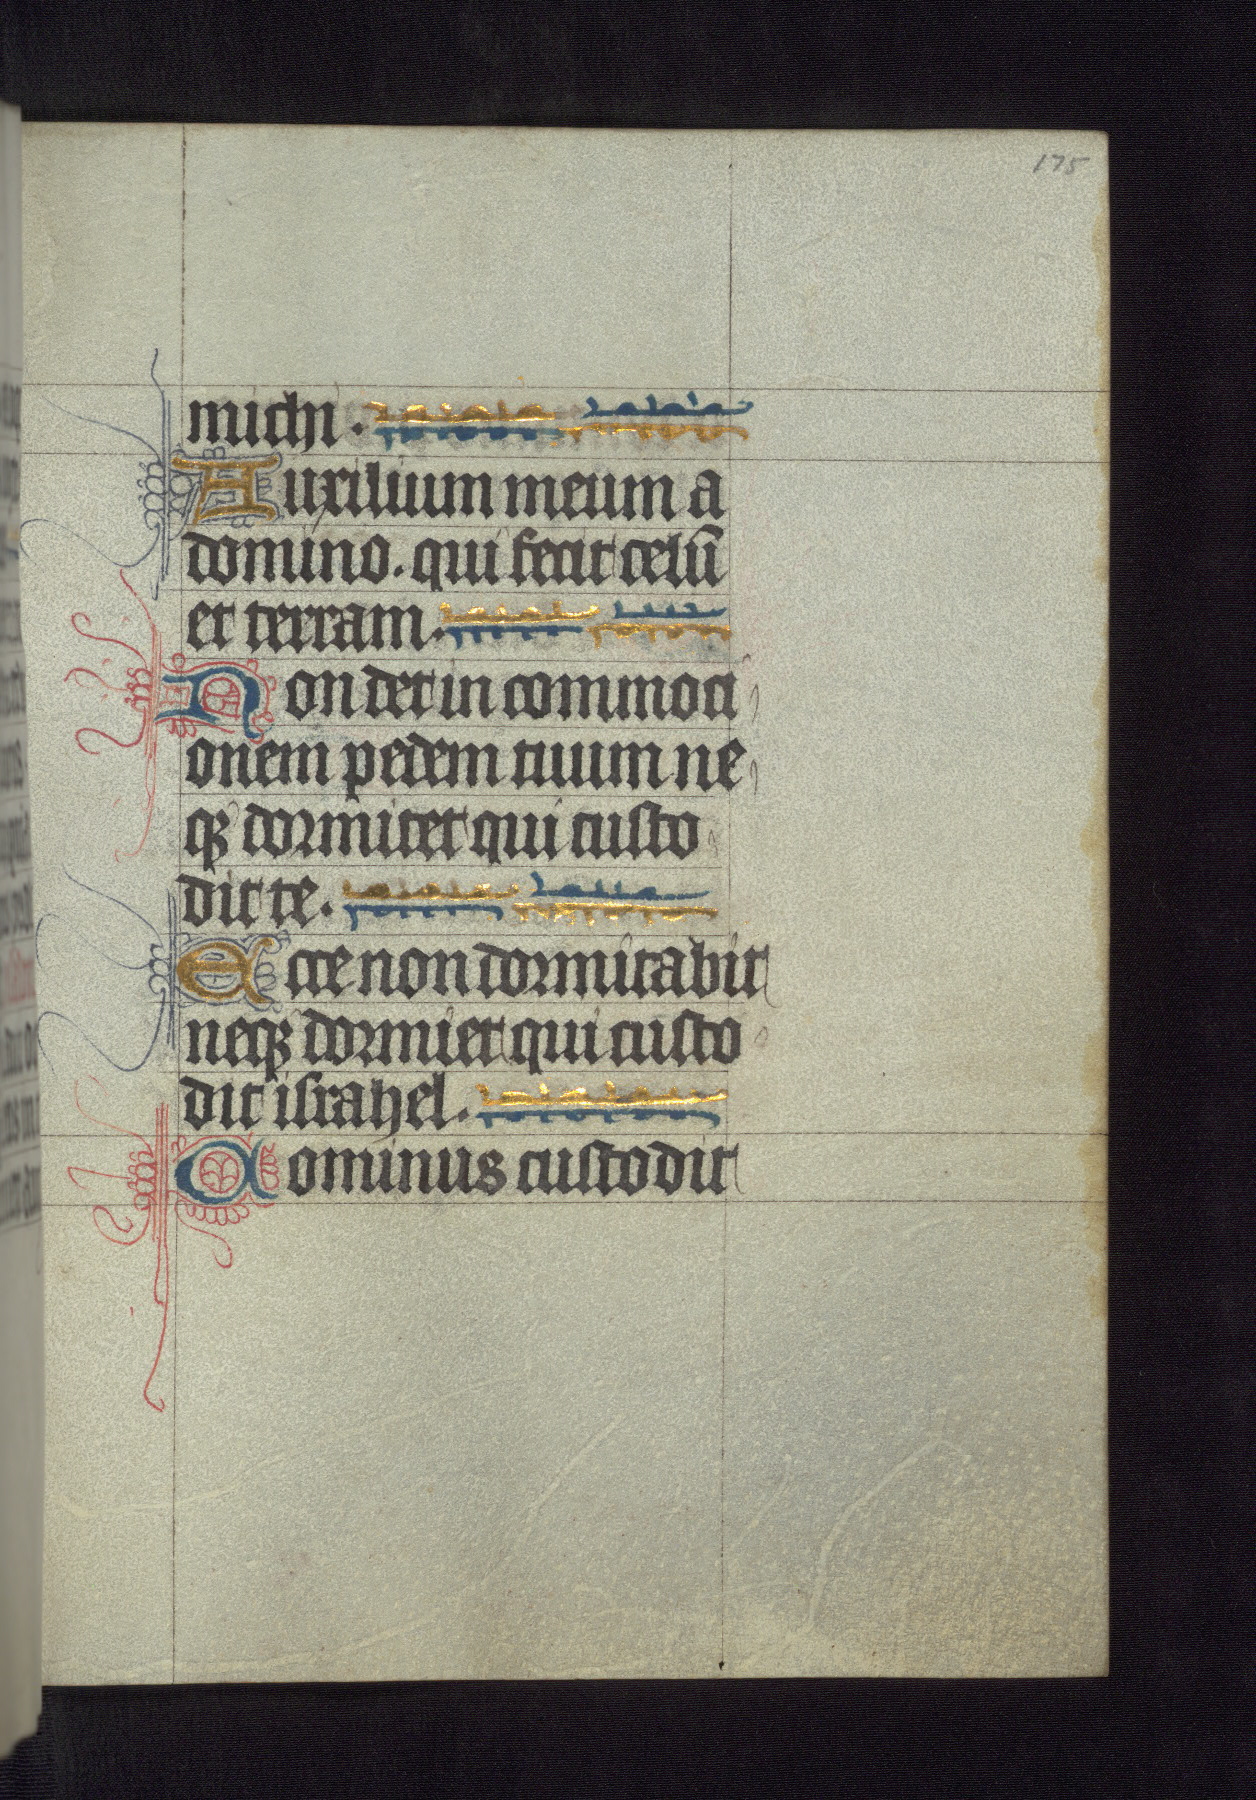 175
michi.
Auxilium meum a
domino. qui fecit celū
et terram.
Non det in commoci
onem pedem tuum ne
qꝫ dormitet qui custo
dit te.
Ecce non dormitabit
neqꝫ dormiet qui custo
dit israhel.
Dominus custodit